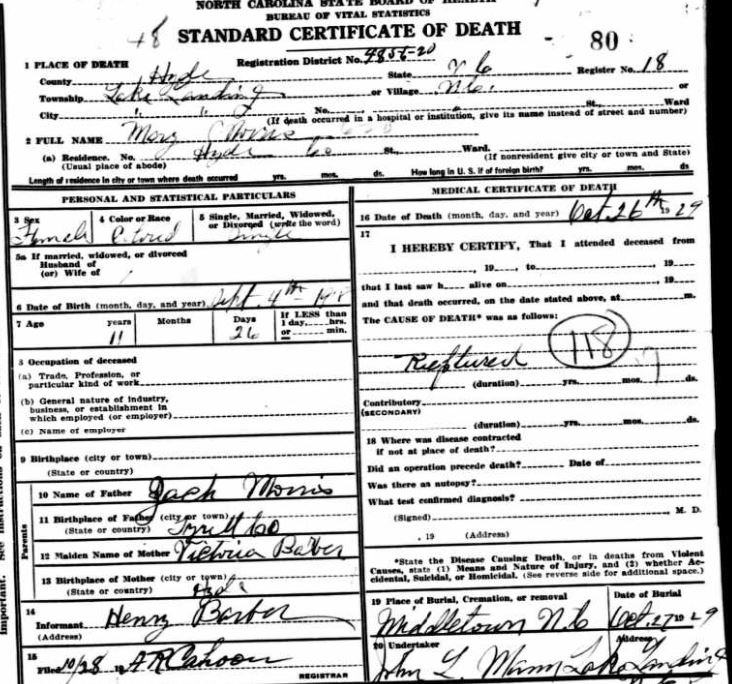 NORTH CAROLINA STATE BOARD OF HEALTH
BUREAU OF VITAL STATISTICS
48 STANDARD CERTIFICATE OF DEATH 80
1 PLACE OF DEATH Registration District No. 4856-20
County Hyde State N C Register No. 18
Township Lake Landing or Village N.C. or
City " " No. St., Ward
(If death occurred in a hospital or institution, give its name instead of street and number)
2 FULL NAME Mary Morris
(a) Residence. No. Hyde Co St., Ward.
(Usual place of abode) (If nonresident give city or town and State)
Length of residence in city or town where death occurred yrs. mos. ds. How long in U. S. if of foreign birth? yrs. mos. ds
PERSONAL AND STATISTICAL PARTICULARS
3 Sex 4 Color or Race 5 Single, Married, Widowed, or Divorced (write the word)
Female Colored Single
5a If married, widowed, or divorced
Husband of
(or) Wife of
6 Date of Birth (month, day, and year) Sept 4th
7 Age years Months Days If LESS than
1 day, hrs.
11 26 or min.
8 Occupation of deceased
(a) Trade, Profession, or
particular kind of work
(b) General nature of industry,
business, or establishment in
which employed (or employer)
(c) Name of employer
9 Birthplace (city or town)
(State or country)
Parents
10 Name of Father Jack Morris
11 Birthplace of Father (city or town)
(State or country) Tyrell Co
12 Maiden Name of Mother Victoria Barber
13 Birthplace of Mother (city or town)
(State or country) Hyde
14
Informant Henry Barber
(Address)
15
Filed 10/28 19 A R Cahoon
REGISTRAR
MEDICAL CERTIFICATE OF DEATH
16 Date of Death (month, day, and year) Oct. 26th 1929
17
I HEREBY CERTIFY, That I attended deceased from
, 19 , to , 19
that I last saw h alive on , 19
and that death occurred, on the date stated above, at m.
The CAUSE OF DEATH* was as follows:
Ruptured 118
(duration) yrs. mos. ds.
Contributory
(SECONDARY)
(duration) yrs. mos. ds.
18 Where was disease contracted
if not at place of death?
Did an operation precede death? Date of
Was there an autopsy?
What test confirmed diagnosis?
(Signed) M. D.
, 19 (Address)
*State the Disease Causing Death, or in deaths from Violent
Causes, state (1) Means and Nature of Injury, and (2) whether Ac-
cidental, Suicidal, or Homicidal. (See reverse side for additional space.)
19 Place of Burial, Cremation, or removal Date of Burial
Middletown N.C Oct. 27 1929
20 Undertaker Address
John L. Mann Lake Landing
N C
important. See instructions on